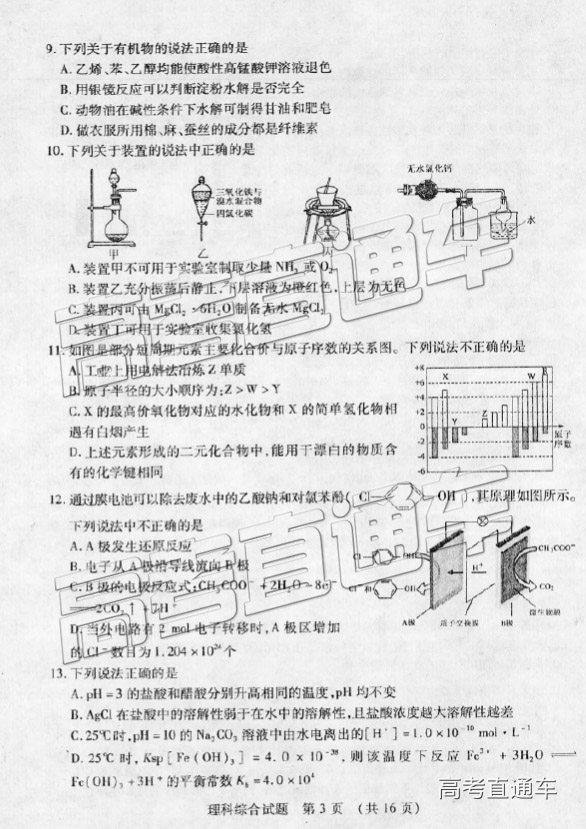 9. 下列关于有机物的说法正确的是
A. 乙烯、苯、乙醇均能使酸性高锰酸钾溶液退色
B. 用银镜反应可以判断淀粉水解是否完全
C. 动物油在碱性条件下水解可制得甘油和肥皂
D. 做衣服所用棉、麻、蚕丝的成分都是纤维素
10. 下列关于装置的说法中正确的是
无水氯化钙
三氧化铁与
溴水混合物
四氯化碳
水
甲 乙 丙
A. 装置甲不可用于实验室制取少量 NH₃ 或 O₂
B. 装置乙充分振荡后静止,下层溶液为橙红色,上层为无色
C. 装置丙可由 MgCl₂·6H₂O 制备无水 MgCl₂
D. 装置丁可用于实验室收集氯化氢
11. 如图是部分短周期元素主要化合价与原子序数的关系图。下列说法不正确的是
A. 工业上用电解法冶炼 Z 单质
B. 原子半径的大小顺序为:Z>W>Y
C. X 的最高价氧化物对应的水化物和 X 的简单氢化物相
遇有白烟产生
D. 上述元素形成的二元化合物中,能用于漂白的物质含
有的化学键相同
+8
+6
+4
+2
0
-2
-4
-6
X Y Z W R
原子
序数
12. 通过膜电池可以除去废水中的乙酸钠和对氯苯酚( Cl OH ),其原理如图所示。
下列说法中不正确的是
A. A 极发生还原反应
B. 电子从 A 极沿导线流向 B 极
C. B 极的电极反应式:CH₃COO⁻+2H₂O-8e⁻
══2CO₂↑+7H⁺
D. 当外电路有 2 mol 电子转移时,A 极区增加
的 Cl⁻数目为 1.204×10²⁴个
Cl OH
Cl⁻和 OH
H⁺
CH₃COO⁻
CO₂
微生物膜
A极 质子交换膜 B极
13. 下列说法正确的是
A. pH=3 的盐酸和醋酸分别升高相同的温度,pH 均不变
B. AgCl 在盐酸中的溶解性弱于在水中的溶解性,且盐酸浓度越大溶解性越差
C. 25℃时,pH=10 的 Na₂CO₃ 溶液中由水电离出的[H⁺]=1.0×10⁻¹⁰ mol·L⁻¹
D. 25℃ 时, Ksp[Fe(OH)₃]=4.0×10⁻³⁸, 则该温度下反应 Fe³⁺+3H₂O⇌
Fe(OH)₃+3H⁺的平衡常数 Kₕ=4.0×10⁴
理科综合试题 第 3 页 (共 16 页)
高考直通车
高考直通车
高考直通车